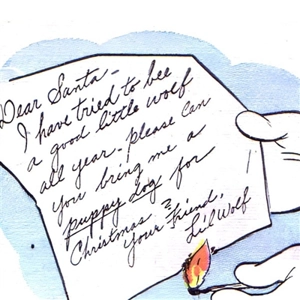 Dear Santa —
I have tried to bee
a good little wolf
all year. Please can
you bring me a
puppy dog for
Christmas?
Your Friend,
Li'd Wolf